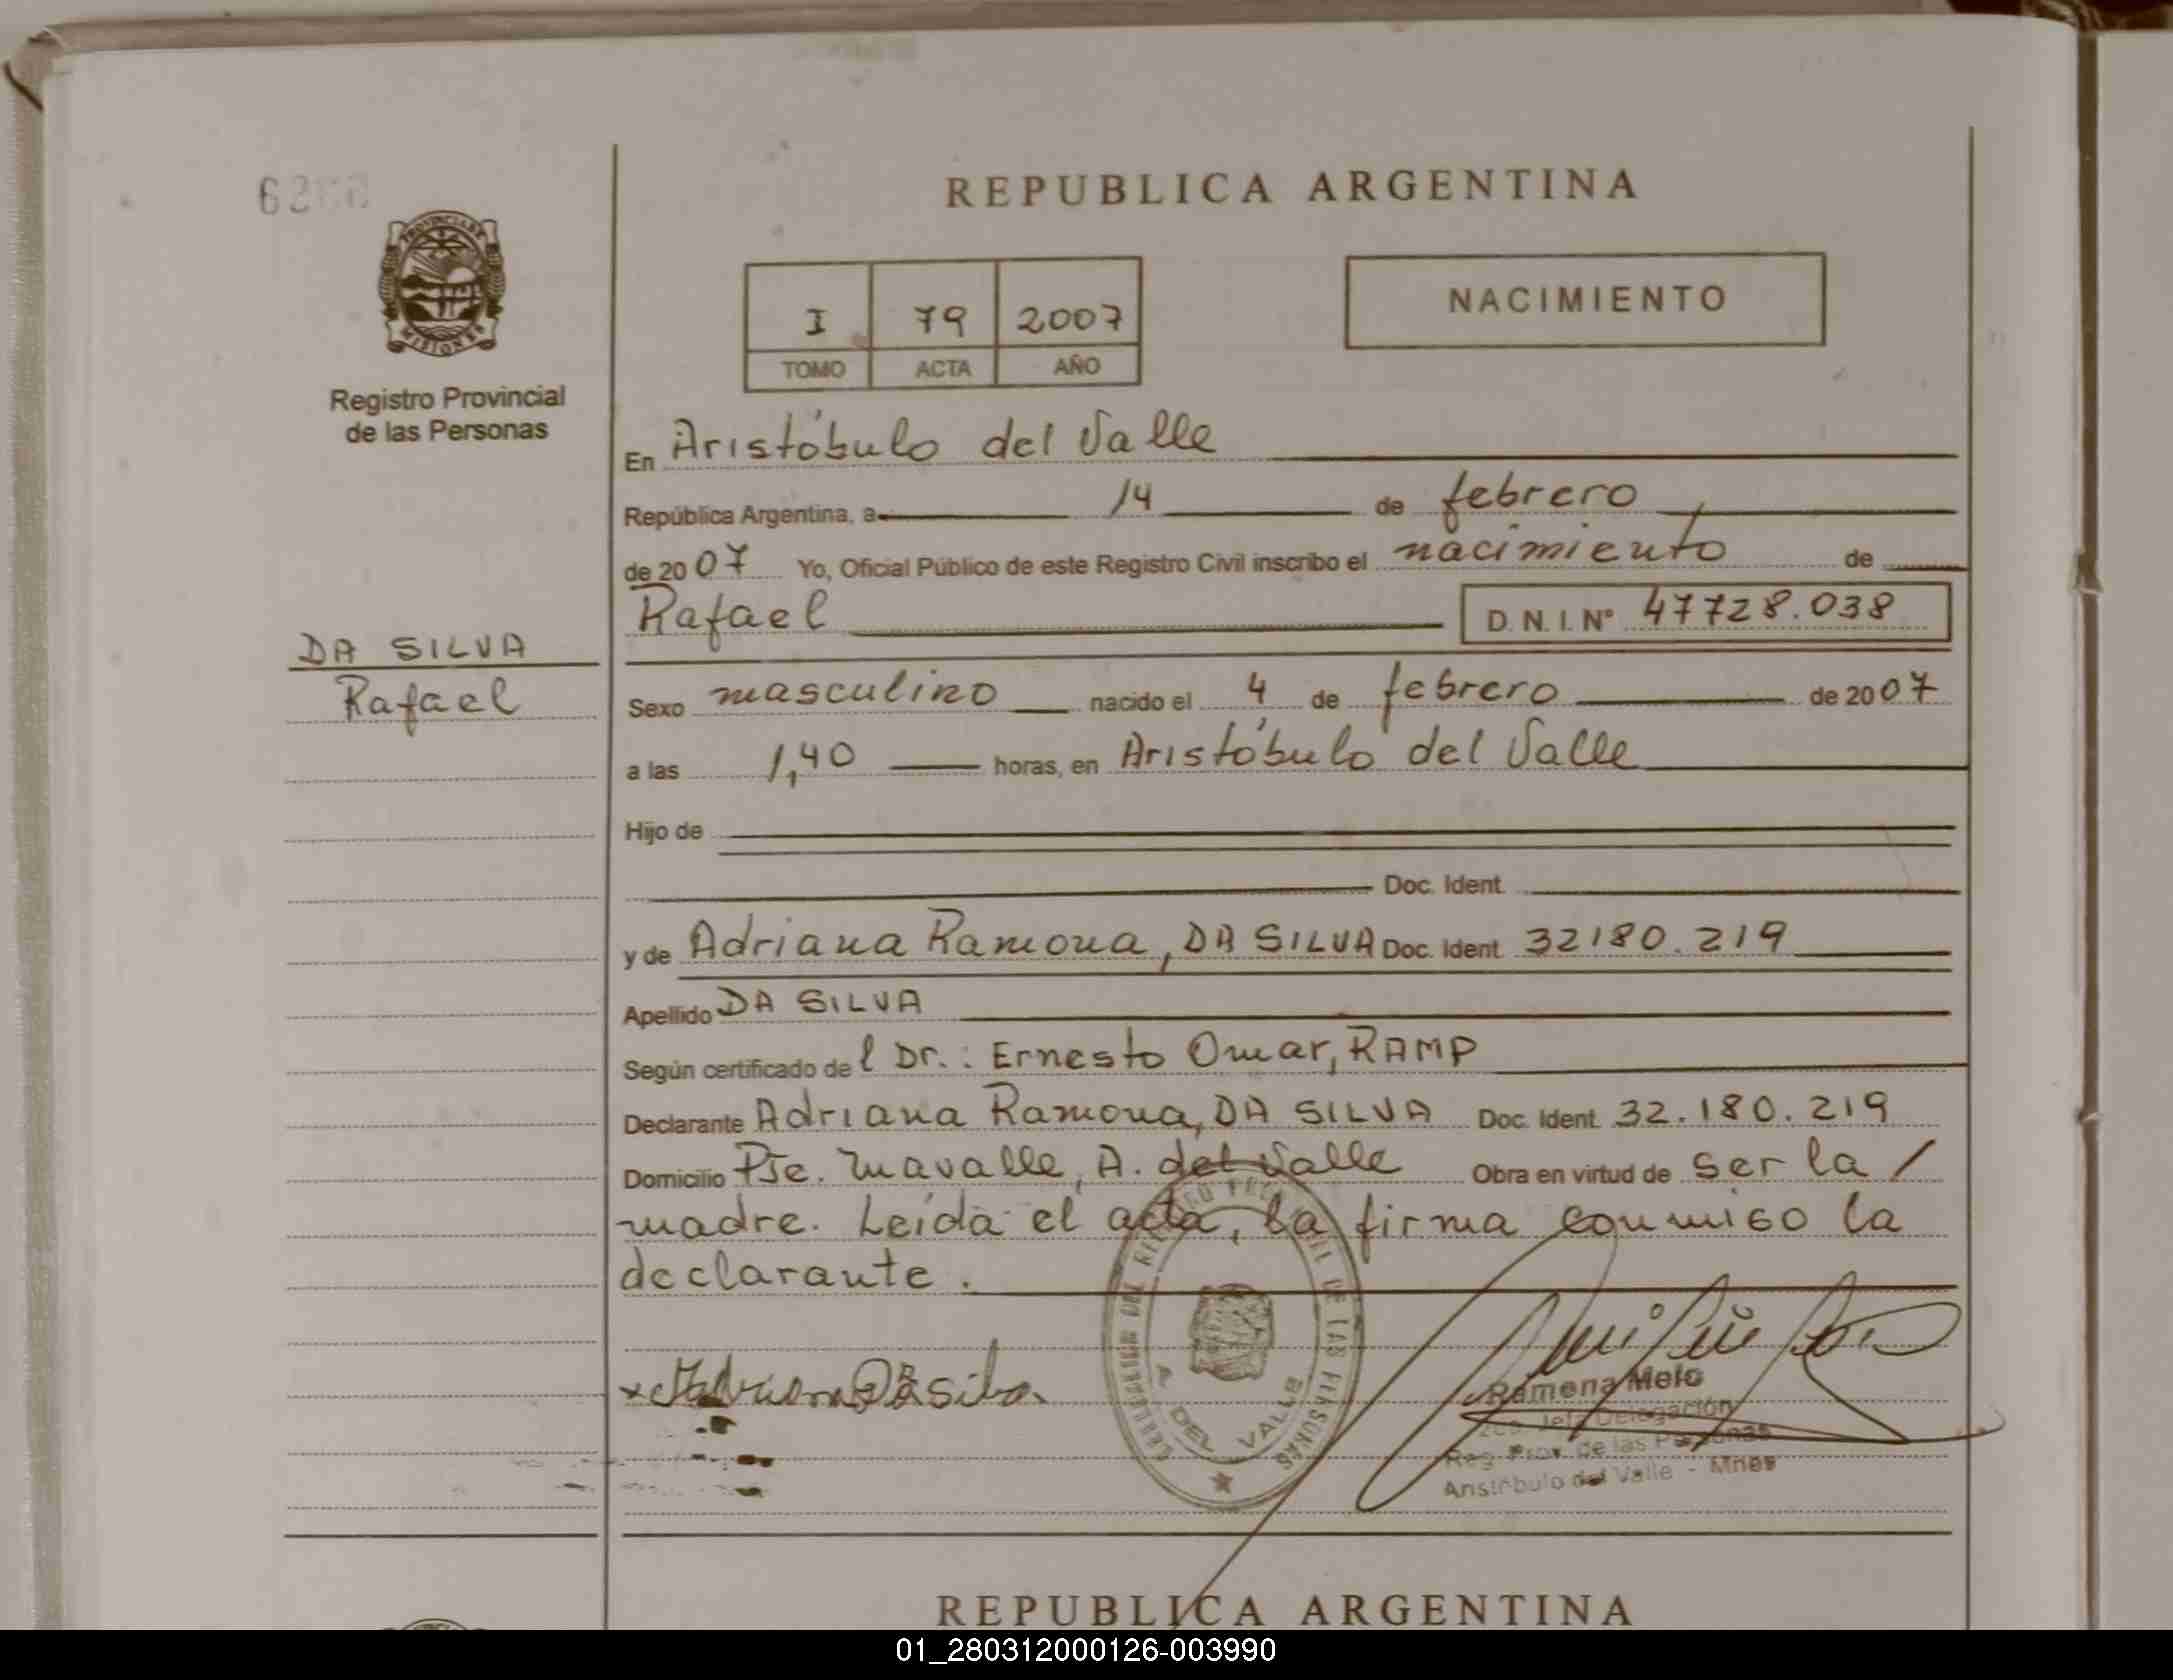 REPUBLICA ARGENTINA
PROVINCIA DE
MISIONES
Registro Provincial
de las Personas
I 79 2007
TOMO ACTA AÑO
NACIMIENTO
En Aristóbulo del Valle
República Argentina, a 14 de febrero
de 2007 Yo, Oficial Público de este Registro Civil inscribo el nacimiento de
Rafael D.N.I. Nº 47728.038
DA SILVA
Rafael
Sexo masculino nacido el 4 de febrero de 2007
a las 1,40 horas, en Aristóbulo del Valle
Hijo de
Doc. Ident.
y de Adriana Ramona, DA SILVA Doc. Ident. 32180.219
Apellido DA SILVA
Según certificado de l Dr.: Ernesto Omar, RAMP
Declarante Adriana Ramona, DA SILVA Doc. Ident. 32.180.219
Domicilio Pje. Mavalle, A. del Valle Obra en virtud de ser la /
madre. Leída el acta, la firma conmigo la
declarante.
DEL VALLE
Ramona Melo
Jefa Delegación
Reg. Prov. de las Personas
Aristóbulo del Valle - Mnes
REPUBLICA ARGENTINA
01_280312000126-003990